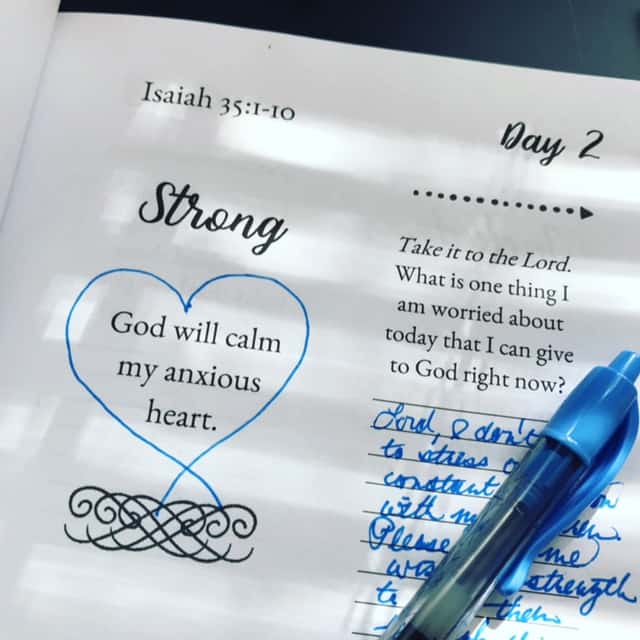 Isaiah 35:1-10
Day 2
Strong
God will calm
my anxious
heart.
Take it to the Lord.
What is one thing I
am worried about
today that I can give
to God right now?
Lord, I don't
to stress
constant
with
Please me
strength
to them